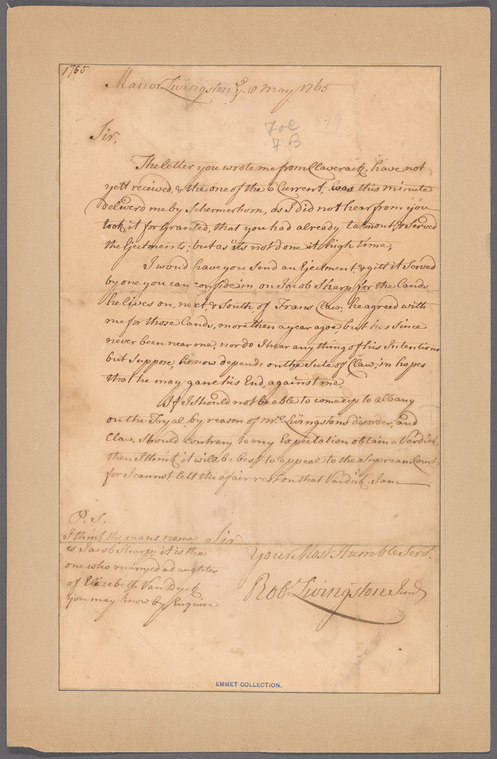 1765
Manor Livingston ye. 8 May, 1765
Fol
7 B
Sir,
The letter you wrote me from Claverack, have not
yett received, & the one of the 6 Current, was this minute
Deliverd me by Schermerhorn, as I Did not hear from you
took it for Granted, that you had already taken out, & Served
the Ejectments; but as its not done it's high time,
I woud have you Send an Ejectment & gitt it Served
by one you can confide in, on Jacob Sharp, for the Lands
he lives on, next & South of Frans Claw; he agreed with
me for those Lands, more then a year agoe, but has since
never been near me, nor do I hear any thing of his Intentions
but Suppose, he now depends on the Sute of Claw, in hopes
that he may gane his End, against me.
If I should not be able to come up to Albany
on the Tryal, by reason of Mrs. Livingstons disorder, and
Claw, should contrary to my Expectation obtain a Vardict,
then I think it will be best to appeal to the Supream Court
for I cannot lett the afair rest on that Vardict. I am
P. S.
I think the mans name
is Jacob Sharp it is the
one who marryed a daughter
of Elizebeth Van Dyck
you may know by Enquire
Sir
Your Most Humble Servt.
Rob Livingston Junr
EMMET COLLECTION.